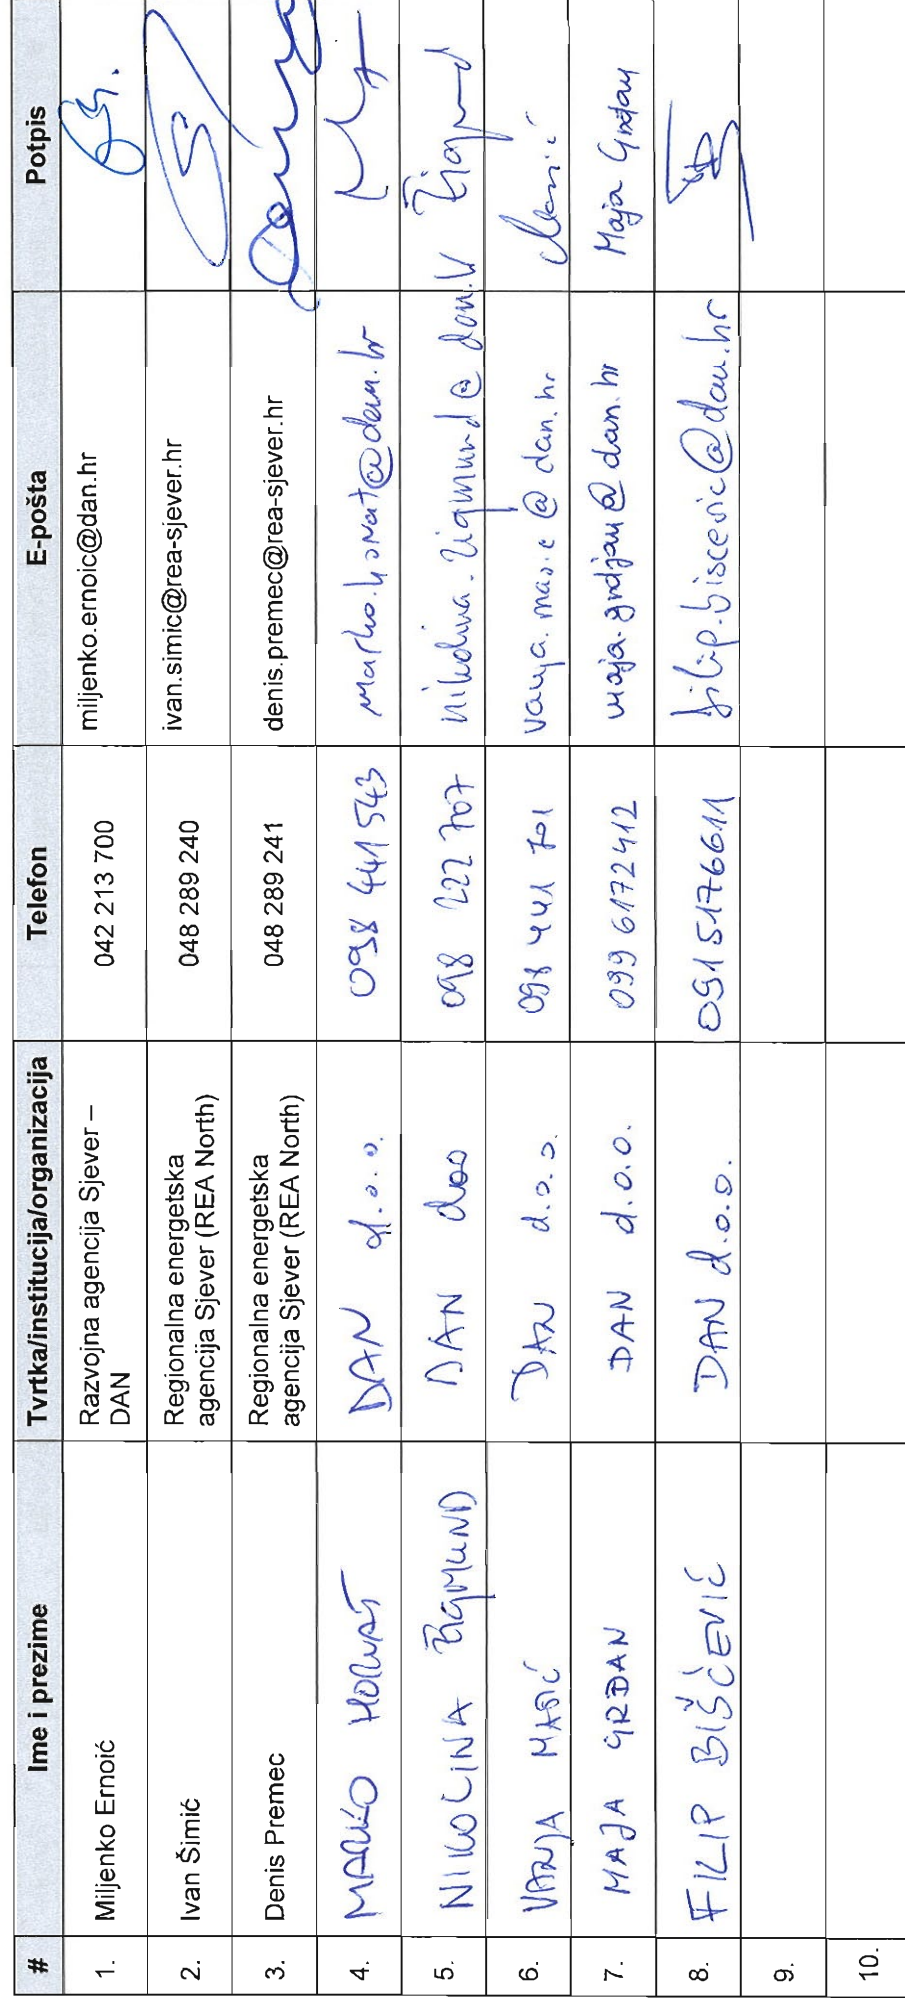 # Ime i prezime Tvrtka/institucija/organizacija Telefon E-pošta Potpis
1. Miljenko Ernoić Razvojna agencija Sjever – 042 213 700 miljenko.ernoic@dan.hr
DAN
2. Ivan Šimić Regionalna energetska 048 289 240 ivan.simic@rea-sjever.hr
agencija Sjever (REA North)
3. Denis Premec Regionalna energetska 048 289 241 denis.premec@rea-sjever.hr
agencija Sjever (REA North)
4. MARKO HORVAT DAN d.o.o. 098 441 543 marko.horvat@dan.hr
5. NIKOLINA ŽIGMUND DAN doo 098 222 707 nikolina.zigmund@dan.hr Žigmund
6. VANJA MASIĆ DAN d.o.o. 098 441 701 vanja.masic@dan.hr Masić
7. MAJA GRĐAN DAN d.o.o. 099 6172412 maja.grdjan@dan.hr Maja Grđan
8. FILIP BIŠĆEVIĆ DAN d.o.o. 0915176611 filip.biscevic@dan.hr
9.
10.